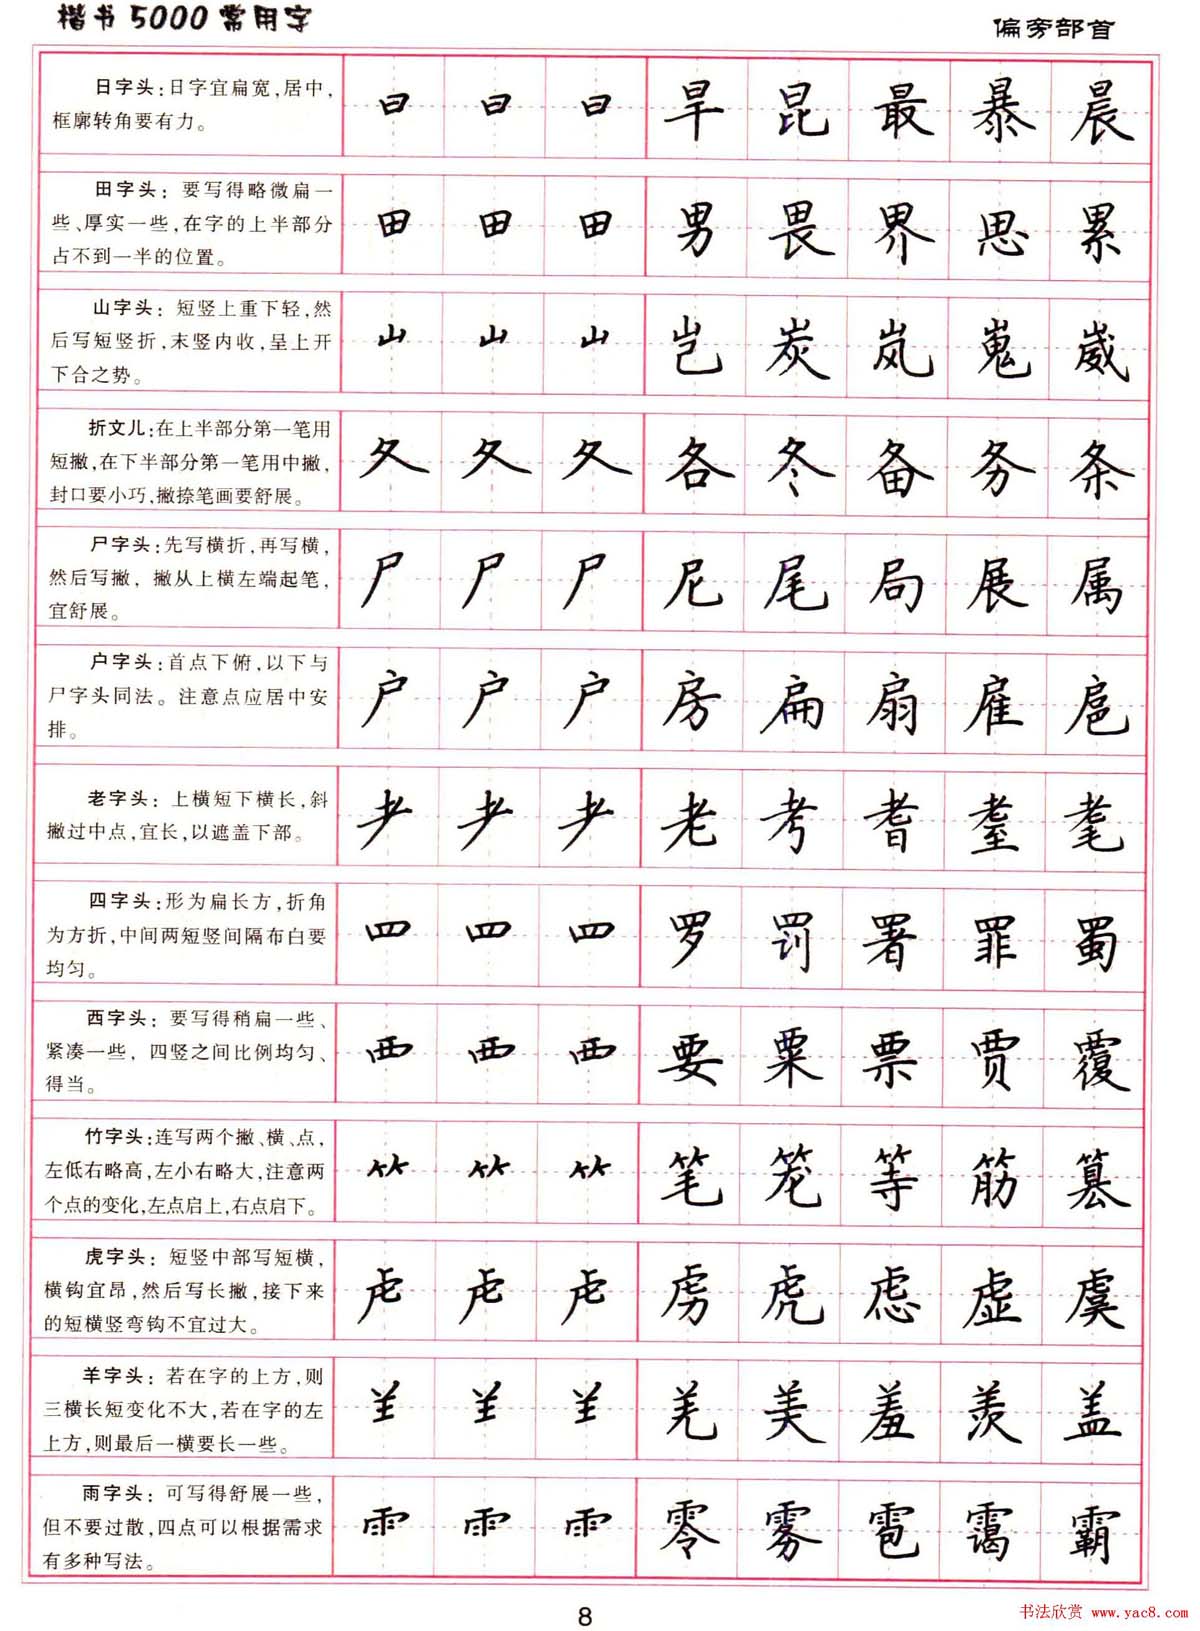 楷书5000常用字
偏旁部首
日字头:日字宜扁宽,居中,
框廓转角要有力。
曰 曰 曰 旱 昆 最 暴 晨
田字头: 要写得略微扁一
些、厚实一些,在字的上半部分
占不到一半的位置。
田 田 田 男 畏 界 思 累
山字头: 短竖上重下轻,然
后写短竖折,末竖内收,呈上开
下合之势。
山 山 山 岂 炭 岚 嵬 崴
折文儿:在上半部分第一笔用
短撇,在下半部分第一笔用中撇,
封口要小巧,撇捺笔画要舒展。
夂 夂 夂 各 冬 备 务 条
尸字头:先写横折,再写横,
然后写撇, 撇从上横左端起笔,
宜舒展。
尸 尸 尸 尼 尾 局 展 属
户字头:首点下俯,以下与
尸字头同法。注意点应居中安
排。
户 户 户 房 扁 扇 雇 扈
老字头: 上横短下横长,斜
撇过中点,宜长,以遮盖下部。
耂 耂 耂 老 考 耆 耋 耄
四字头:形为扁长方,折角
为方折,中间两短竖间隔布白要
均匀。
罒 罒 罒 罗 罚 署 罪 蜀
西字头: 要写得稍扁一些、
紧凑一些, 四竖之间比例均匀、
得当。
覀 覀 覀 要 粟 票 贾 覆
竹字头:连写两个撇、横、点,
左低右略高,左小右略大,注意两
个点的变化,左点启上,右点启下。
⺮ ⺮ ⺮ 笔 笼 等 筋 篡
虎字头: 短竖中部写短横,
横钩宜昂,然后写长撇,接下来
的短横竖弯钩不宜过大。
虍 虍 虍 虏 虎 虑 虚 虞
羊字头: 若在字的上方,则
三横长短变化不大,若在字的左
上方,则最后一横要长一些。
⺷ ⺷ ⺷ 羌 美 羞 羡 盖
雨字头: 可写得舒展一些,
但不要过散,四点可以根据需求
有多种写法。
⻗ ⻗ ⻗ 零 雾 雹 霭 霸
8
书法欣赏 www.yac8.com